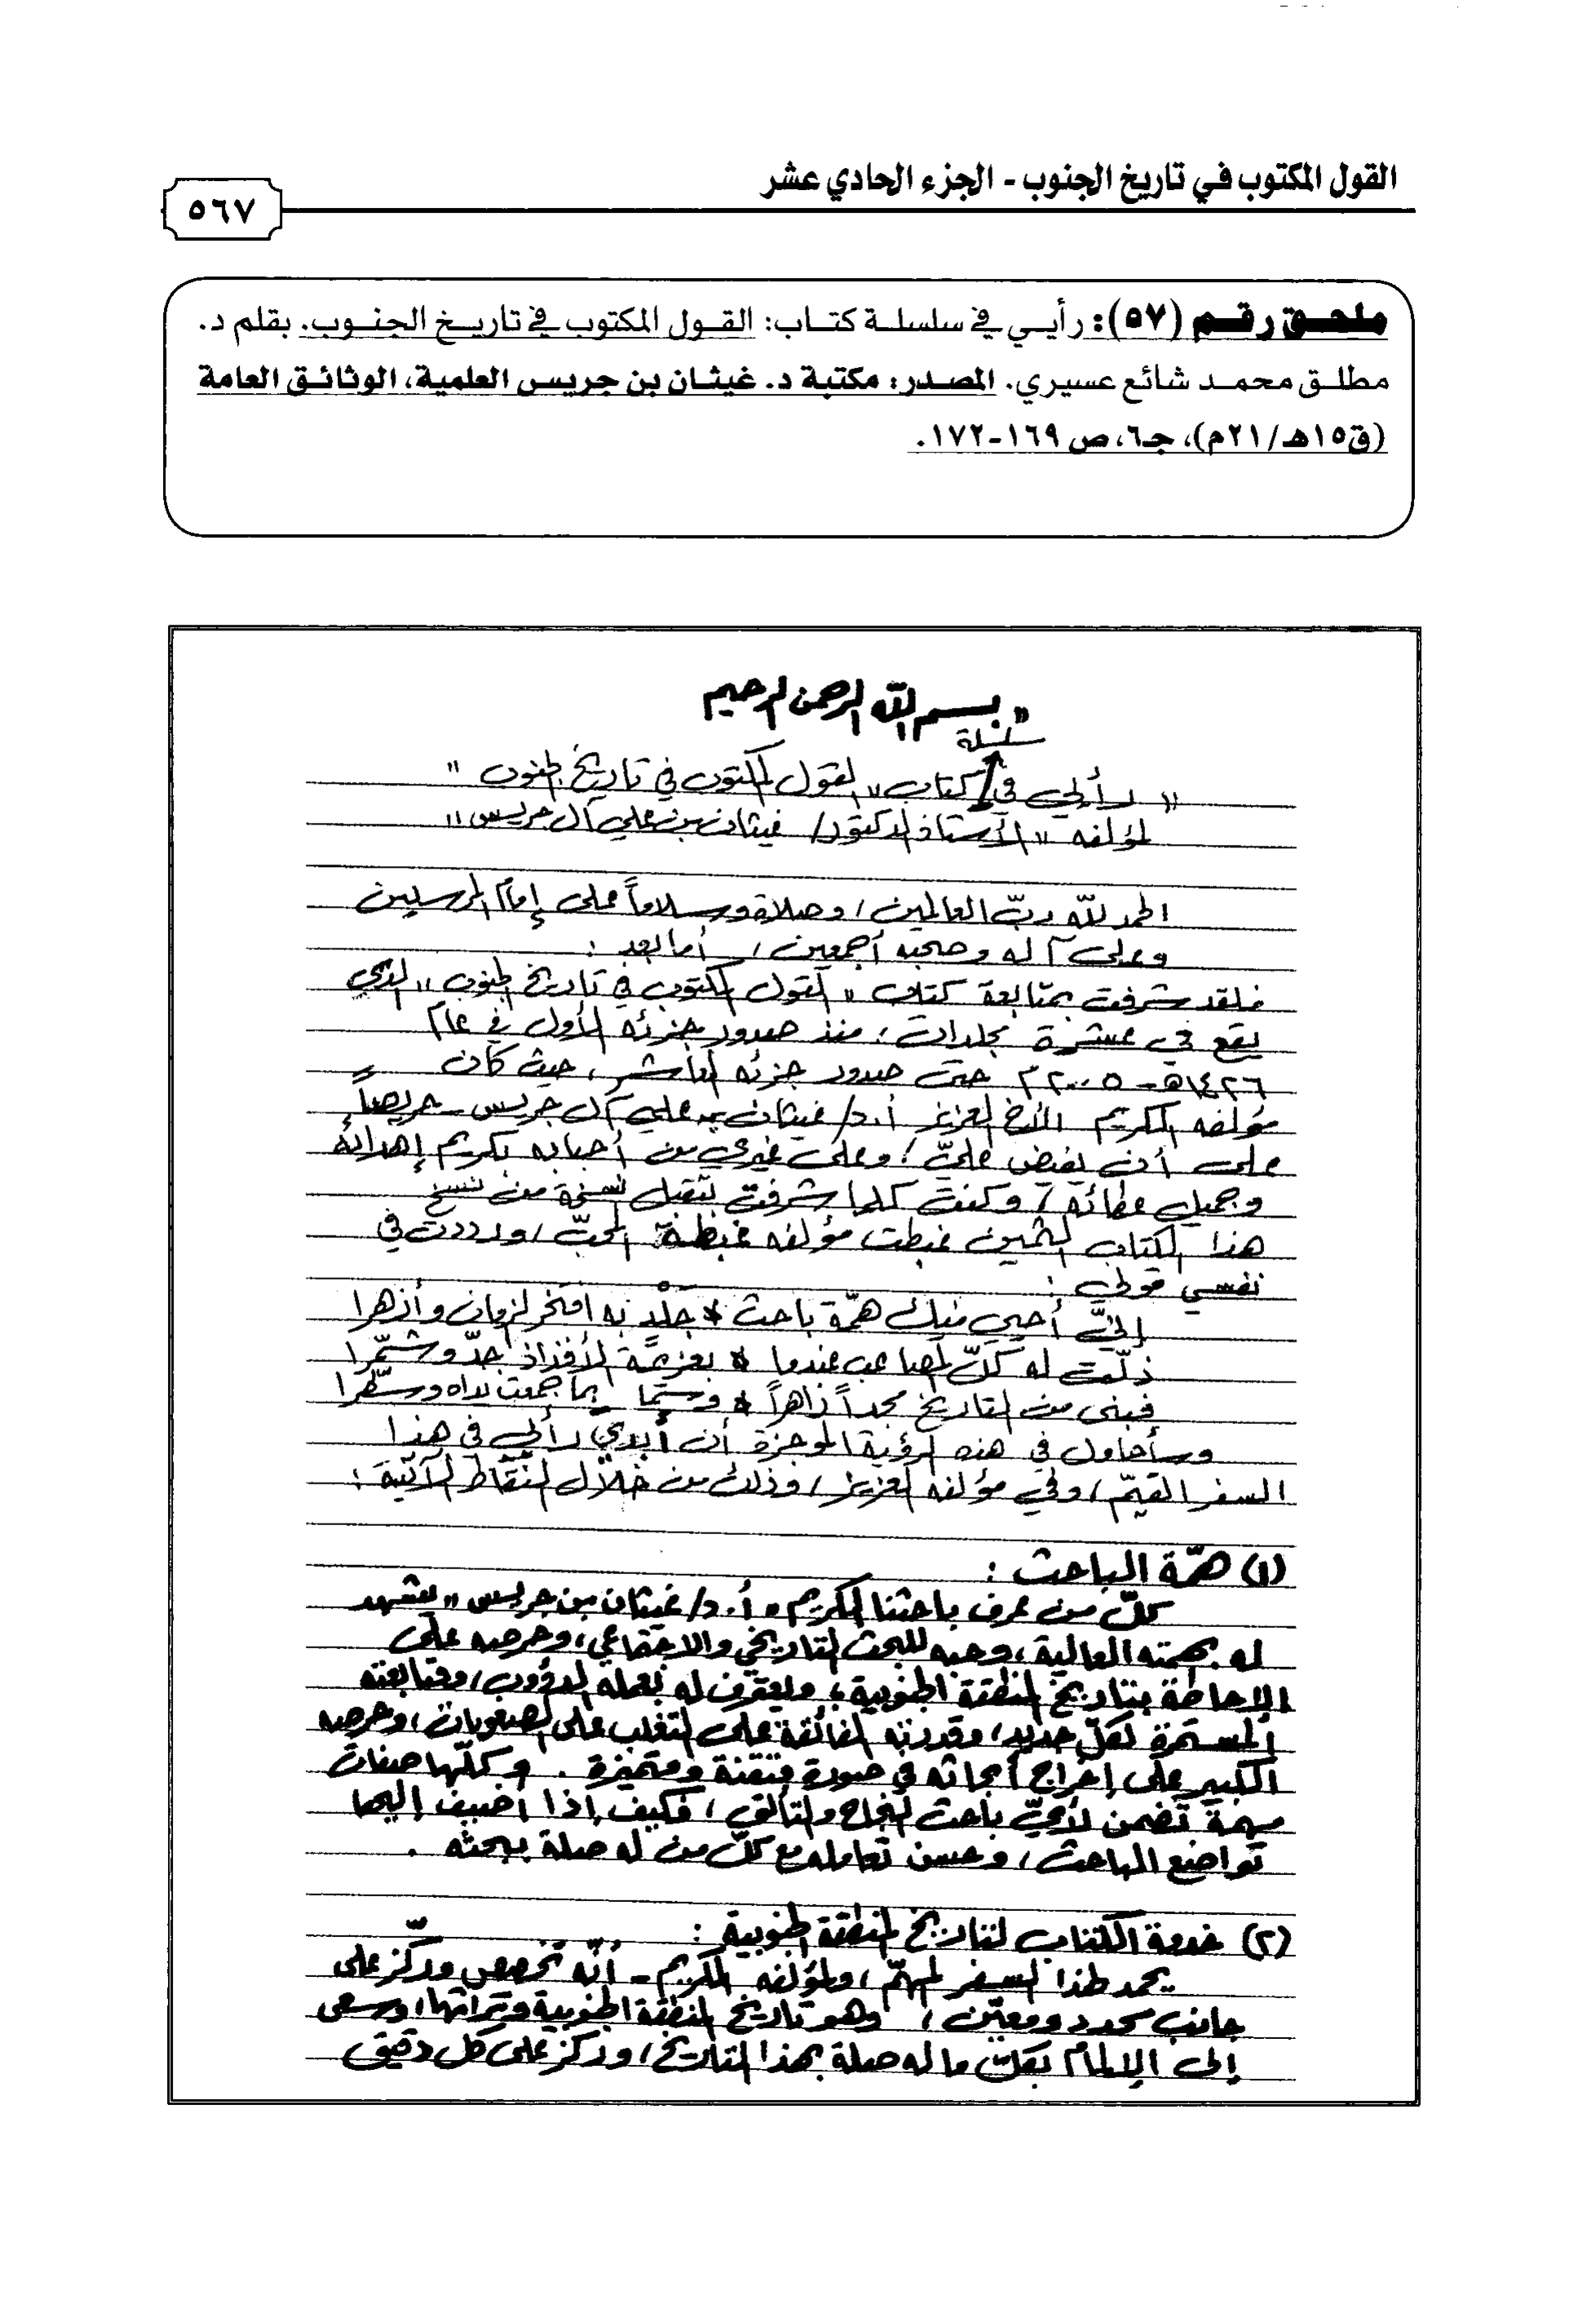 القول المكتوب في تاريخ الجنوب - الجزء الحادي عشر
٥٦٧
ملحق رقم (٥٧): رأيي في سلسلة كتاب: القول المكتوب في تاريخ الجنوب. بقلم د.
مطلق محمد شائع عسيري. المصدر: مكتبة د. غيثان بن جريس العلمية، الوثائق العامة
(ق١٥هـ/٢١م)، جـ٦، ص ١٦٩-١٧٢.
" بسم الله الرحمن الرحيم
سلسلة
" رأيي في كتاب " القول المكتوب في تاريخ الجنوب "
لمؤلفه " الأستاذ الدكتور/ غيثان بن علي آل جريس "
الحمد لله ربّ العالمين، وصلاة وسلاماً على إمام المرسلين
وعلى آله وصحبه أجمعين، أما بعد :
فلقد شرفت بمتابعة كتاب " القول المكتوب في تاريخ الجنوب " الذي
يقع في عشرة مجلدات، منذ صدور جزئه الأول في عام
١٤٢٦هـ - ٢٠٠٥م حتى صدور جزئه العاشر، حيث كان
مؤلفه الكريم الأخ العزيز أ.د/ غيثان بن علي آل جريس - حريصاً
على أن يفيض عليّ، وعلى غيري من أحبابه بكريم إهدائه
وجميل عطائه، وكنت كلما شرفت بتقبل نسخة من نسخ
هذا الكتاب الثمين غبطت مؤلفه غبطة المحبّ، ورددت في
نفسي قولي :
إنّي أحيي فيك همّة باحث * جَلْدٍ به افتخر الزمان وأزهرا
ذلّت له كلّ المصاعب عندما * بعزيمة الأفذاذ جدّ وشمّرا
فبنى من التاريخ مجداً زاهراً * وسمَا بما جمعت يداه وسطّرا
وسأحاول في هذه الرؤية الموجزة أن أبدي رأيي في هذا
السفر القيّم، وفي مؤلفه العزيز، وذلك من خلال النّقاط الآتية :
(١) همّة الباحث :
كلّ من عرف باحثنا الكريم " أ.د/ غيثان بن جريس " يشهد
له بهمته العالية، وحبه للبحث التاريخي والاجتماعي، وحرصه على
الإحاطة بتاريخ المنطقة الجنوبية، ويعترف له بعمله الدؤوب، ومتابعته
المستمرة لكلّ جديد، وقدرته الفائقة على التغلب على الصعوبات، وحرصه
الكبير على إخراج أبحاثه في صورة متقنة ومتميزة . وكلّها صفات
مهمة تضمن لأيّ باحث النجاح والتألق، فكيف إذا أضيف إليها
تواضع الباحث، وحسن تعامله مع كلّ من له صلة ببحثه .
(٢) خدمة الكتاب لتاريخ المنطقة الجنوبية :
يحمد لهذا السفر المهمّ، ولمؤلفه الكريم - أنّه تخصص وركّز على
جانب محدد ومعيّن، وهو تاريخ المنطقة الجنوبية وتراثها، وسعى
إلى الإلمام بكلّ ما له صلة بهذا التاريخ، وركز على كل دقيق